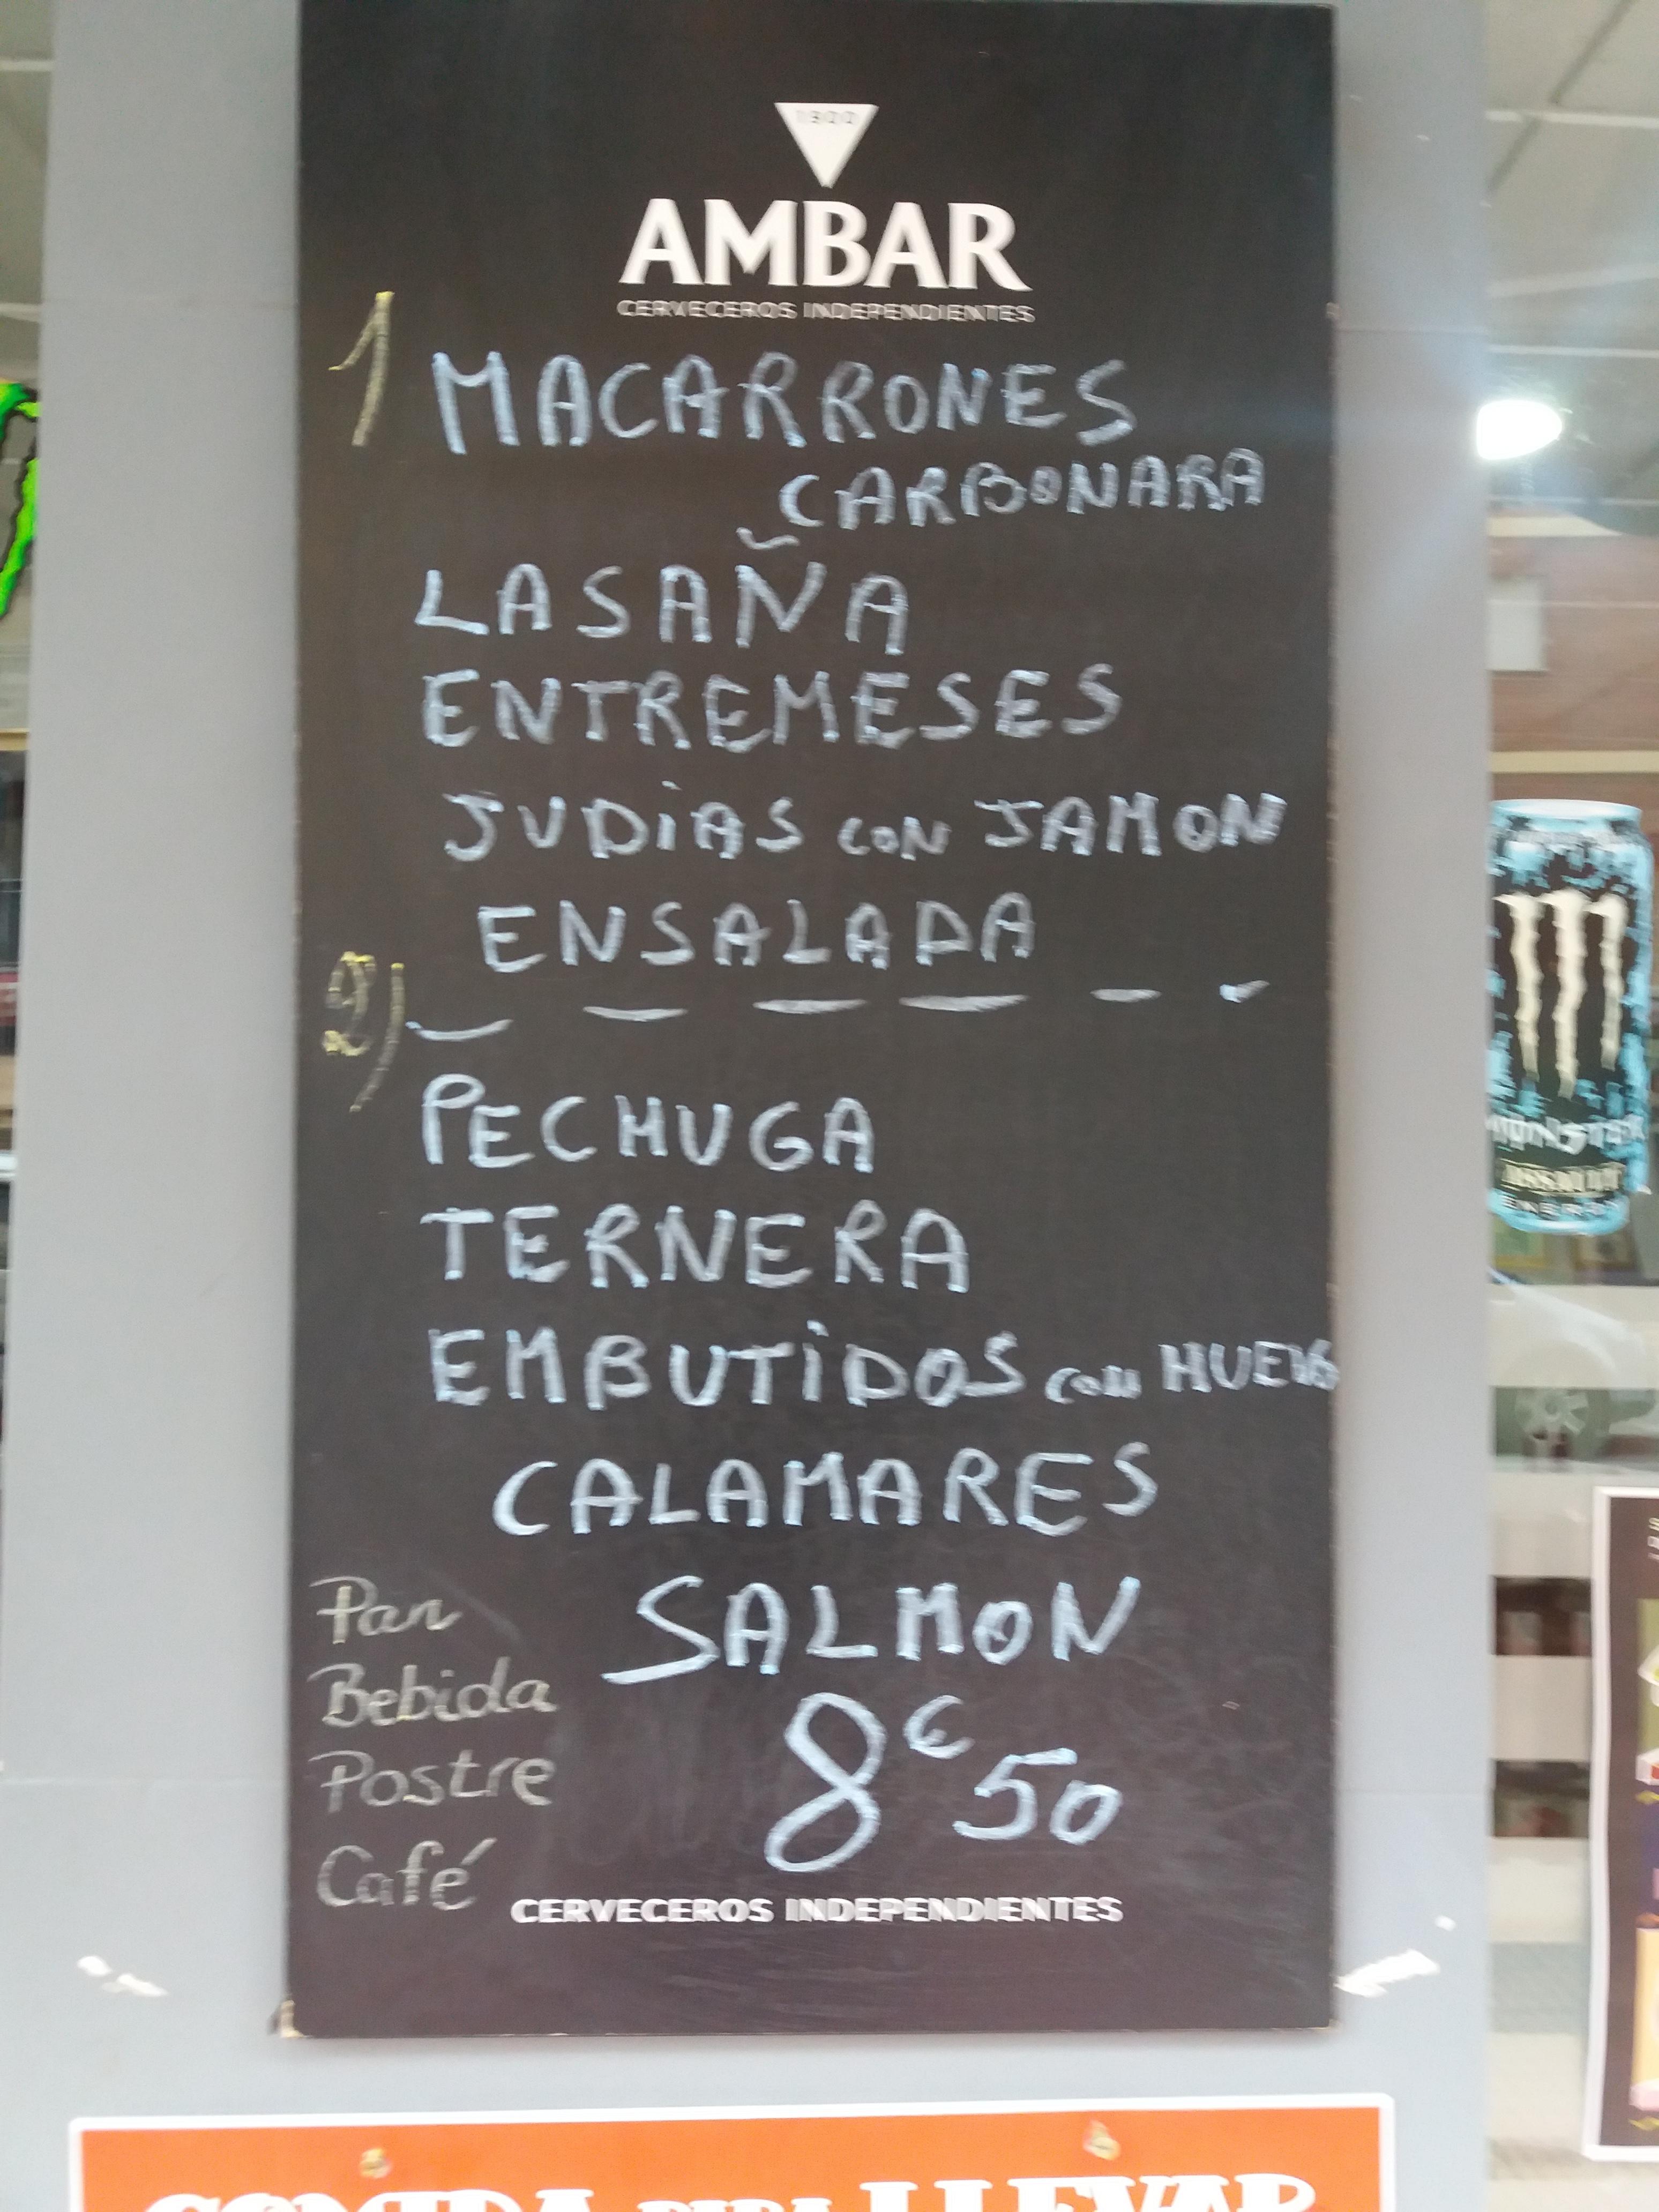 1900
AMBAR
CERVECEROS INDEPENDIENTES
1 MACARRONES
CARBONARA
LASAÑA
ENTREMESES
JUDiAS con JAMON
ENSALADA
2)
PECHUGA
TERNERA
EMBUTiDOS con HUEVO
CALAMARES
SALMON
Pan
Bebida
Postre
Café
8€50
CERVECEROS INDEPENDIENTES
COMIDA PARA LLEVAR
MONSTER
ASSAULT
ENERGY